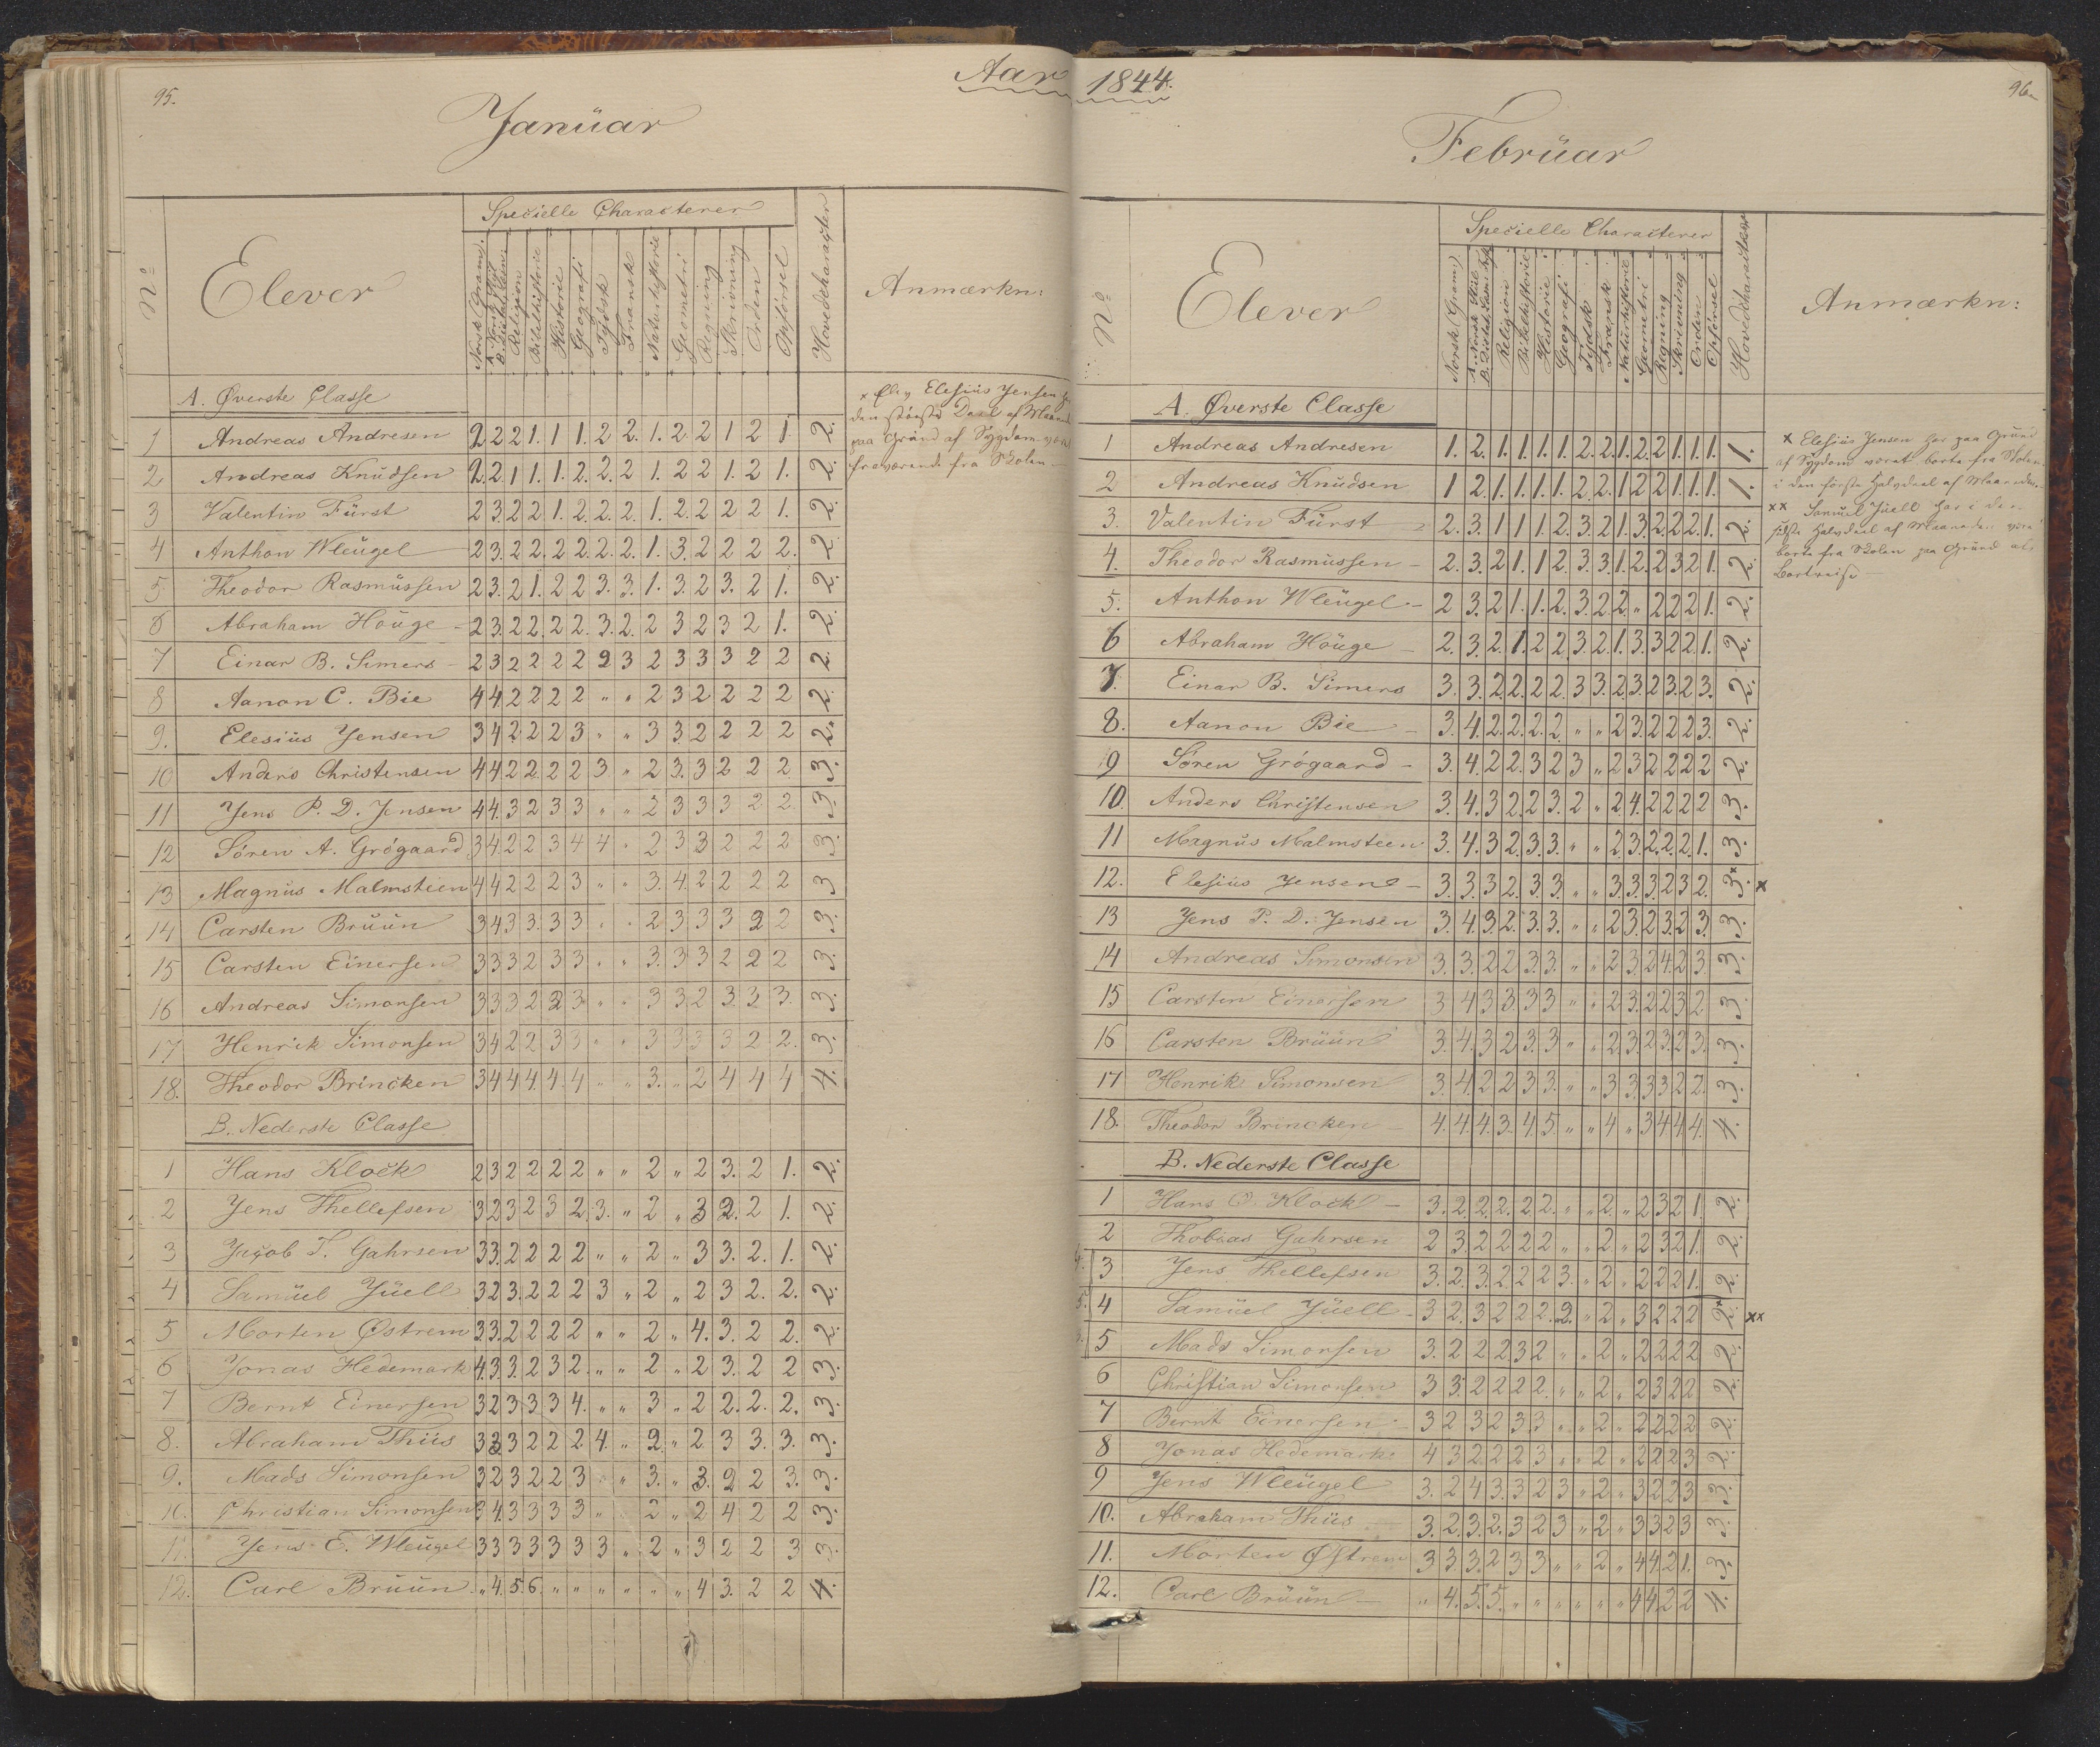 95.
Aar
Januar
Nº
Elever
Specielle Characterer
Norsk Gram.
A. Norsk Stiil
Religion
Bibelhistorie
Historie
Geografi
Tydsk
Fransk
Naturhistorie
Geometri
Regning
Skrivning
Orden
Opførsel
Hovedcharacter
Anmærkn:
A. Øverste Classe
1 Andreas Andresen 2 2 2 1. 1 1. 2 2. 1. 2. 2 1 2 1 2.
2 Andreas Knudsen 2. 2. 1 1. 1. 2. 2. 2 1. 2 2 1. 2 1. 2.
3 Valentin Fürst 2 3. 2 2 1. 2. 2. 2. 1. 2. 2 2 2 1. 2.
4 Anthon Wleugel 2 3. 2 2. 2 2. 2. 2. 1. 3. 2 2 2 2. 2
5 Theodor Rasmussen 2 3. 2 1. 2 2 3. 3. 1. 3. 2 3. 2 1. 2.
6 Abraham Houge 2 3. 2 2. 2 2. 3. 2. 2 3 2 3 2 1. 2.
7 Einar B. Simers 2 3 2 2 2 2 2 3 2 3 3 3 2 2 2.
8 Aanon C. Bie 4 4. 2 2 2 2 " " 2 3 2 2 2 2 2.
9. Elesius Jensen 3 4 2 2 2 3 " " 3 3. 2 2 2 2 2.
10 Anders Christensen 4 4 2 2 2 2 3 " 2 3. 3 2 2 2 3.
11 Jens P. D. Jensen 4 4. 3 2 3 3 " " 2 3 3 3 2 2. 3.
12 Søren A. Grögaard 3 4. 2 2 3 4 4 " 2 3 3 2 2 2 3.
13 Magnus Malmsteen 4 4 2 2 2 3 " " 3. 4. 2 2 2 2 3
14 Carsten Bruun 3 4 3 3. 3 3 " " 2. 3 3 3 2 2 3.
15 Carsten Einersen 3 3 3 2 3 3 " " 3. 3 3 2 2 2 3.
16 Andreas Simonsen 3 3 3 2 2 3 " " 3 3 2 3. 3 3. 3.
17 Henrik Simonsen 3 4 2 2 3 3 " " 3 3 3 3 2 2. 3.
18. Theodor Brincken 3 4 4 4. 4. 4 " " 3. " 2 4 4 4 4.
B. Nederste Classe
1 Hans Klock 2 3 2 2 2 2 " " 2 " 2 3. 2 1. 2.
2 Jens Thellefsen 3 2 3 2 3 2. 3. " 2 " 3 2. 2 1. 2.
3 Jacob T. Gahrsen 3 3. 2 2 2 2 " " 2 " 3 3. 2. 1. 2.
4 Samuel Juell 3 2 3. 2 2 2 3 " 2 " 2 3 2. 2. 2.
5 Morten Østrem 3 3. 2 2 2 2 " " 2 " 4. 3. 2 2. 2.
6 Jonas Hedemark 4. 3 3. 2 3 2. " " 2 " 2 3. 2 2 3.
7 Bernt Einersen 3 2 3 3 3 4. " " 3 " 2 2. 2. 2. 3.
8. Abraham Thiis 3 3 3 2 2 2 4. " 2. " 2 3 3. 3. 3.
9. Mads Simonsen 3 2 3 2 2 3 " " 3. " 3. 2 2 3. 3.
10. Christian Simonsen 3 4. 3 3 3 3 " " 2 " 2 4 2 2 3.
11. Jens E. Wleugel 3 3 3 3 3 3 3 " 2 " 3 2 2 3 3.
12. Carl Bruun " 4. 5 6 " " " " " " 4 3. 2 2 4.
x Elev Elesius Jensen
den største Deel af
paa Grund af Sygdom
fraværende fra Skolen
1844.
96
Februar
Nº
Elever
Specielle Characterer
Norsk Gram.
A. Norsk Stiil
Religion
Bibelhistorie
Historie
Geografi
Tydsk
Fransk
Naturhistorie
Geometri
Regning
Skrivning
Orden
Opførsel
Hovedcharacter
Anmærkn:
A. Øverste Classe
1 Andreas Andresen 1. 2. 1. 1. 1. 1. 2. 2. 1. 2. 2 1. 1. 1. 1.
2 Andreas Knudsen 1 2. 1. 1. 1. 1. 2. 2. 1 2 2 1. 1. 1. 1.
3. Valentin Fürst 2. 3. 1 1 1. 2. 3. 2 1. 3. 2. 2. 2. 1. 2.
4. Theodor Rasmussen 2. 3. 2 1. 1 2. 3. 3. 1. 2. 2 3 2 1. 2.
5. Anthon Wleugel 2 3. 2 1. 1. 2. 3. 2 2. " 2 2 2 1. 2.
6 Abraham Houge 2. 3. 2. 1. 2 2. 3. 2. 1. 3. 3 2 2. 1. 2.
7. Einar B. Simers 3. 3. 2. 2. 2 2. 3 3. 2. 3. 2 3. 2 3. 2.
8. Aanon Bie 3. 4. 2. 2. 2. 2. " " 2 3. 2 2 2 3. 2.
9 Søren Grögaard 3. 4. 2 2. 3 2 3 " 2 3 2 2 2 2 2.
10. Anders Christensen 3. 4. 3 2. 2 3. 2 " 2 4. 2 2 2 2 3.
11 Magnus Malmsteen 3. 4. 3 2. 3. 3. " " 2. 3. 2. 2. 2. 1. 3.
12. Elesius Jensen 3. 3. 3 2. 3. 3. " " 3 3. 3. 2 3 2. 3. x
13 Jens P. D. Jensen 3. 4. 3 2. 3. 3. " " 2 3. 2 3. 2 3. 3.
14 Andreas Simonsen 3. 3. 2 2 3. 3. " " 2 3. 2 4. 2 3. 3.
15 Carsten Einersen 3 4 3 3. 3 3 " " 2 3. 2 2 3 2 3.
16 Carsten Bruun 3. 4. 3 2 3. 3 " " 2. 3. 2 3. 2 3. 3.
17 Henrik Simonsen 3. 4. 2 2 3 3. " " 3 3. 3 3 2 2. 3.
18. Theodor Brincken 4. 4. 4. 3. 4. 5. " " 4 " 3 4 4. 4. 4.
B. Nederste Classe
1 Hans O. Klock 3. 2. 2. 2. 2. 2. " " 2. " 2 3 2 1. 2.
2 Thobias Gahrsen 2 3. 2 2 2 2 " " 2. " 2 3 2 1. 2.
3 Jens Thellefsen 3. 2. 3. 2 2 2 3. " 2 " 2 2 2 1. 2.
4 Samuel Juell 3 2. 3 2 2 2. 2. " 2 " 3 2 2 2 2. xx
5 Mads Simonsen 3. 2 2 2 3 2 " " 2 " 2 2 2 2 2.
6 Christian Simonsen 3 3. 2 2 2 2. " " 2 " 2 3 2 2 2.
7 Bernt Einersen 3 2 3 2 3 3 " " 2 " 2 2 2 2 2.
8 Jonas Hedemark 4 3 2 2 2 3 " " 2 " 2 2 2 3 2.
9 Jens Wleugel 3. 2 4 3. 3 2 3 " 2 " 3 2 2 3 3.
10. Abraham Thiis 3. 2. 3. 2. 3 2 3 " 2 " 3 3 2 3 3.
11. Morten Østrem 3 3 3. 2 3 3 " " 2 " 4 4. 2 1. 3.
12. Carl Bruun " 4. 5. 5. " " " " " " 4 4. 2 2 4.
x Elesius Jensen har paa Grund
af Sygdom været borte fra Skolen
i den første Halvdeel af Maaneden.
xx Samuel Juell har i den
sidste Halvdeel af Maaneden været
borte fra Skolen paa Grund af
Bortreise